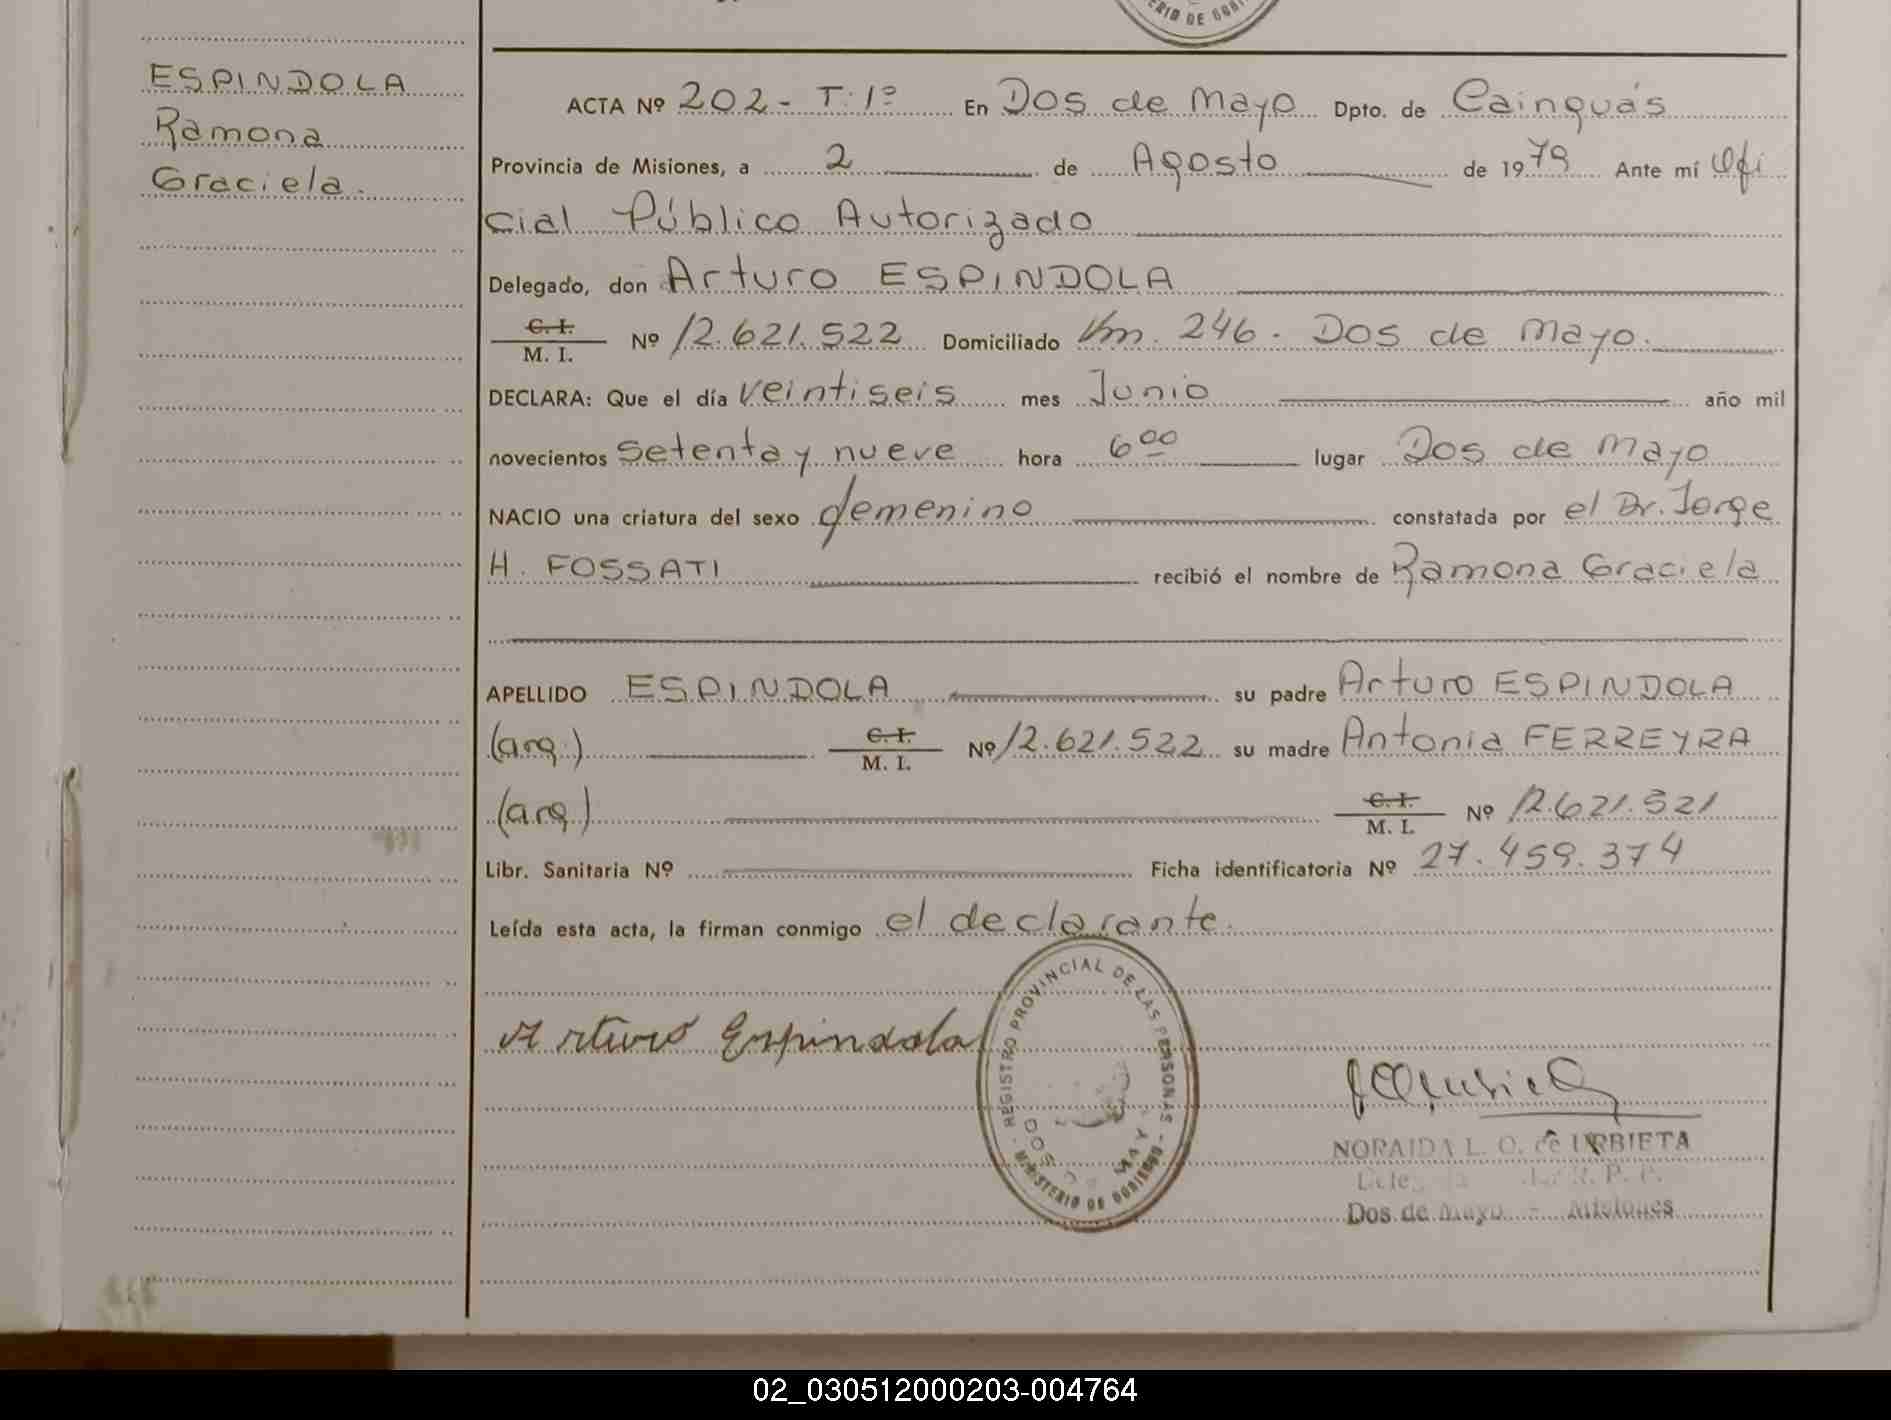 ERIO DE GOBI
ESPINDOLA
Ramona
Graciela.
ACTA Nº 202 - T: 1º En Dos de Mayo Dpto. de Cainguás
Provincia de Misiones, a 2 de Agosto de 1979 Ante mí Ofi
cial Público Autorizado
Delegado, don Arturo ESPINDOLA
C. I.
M. I. Nº 12.621.522 Domiciliado Km. 246 - Dos de Mayo.
DECLARA: Que el día veintiseis mes Junio año mil
novecientos setenta y nueve hora 6 00 lugar Dos de Mayo
NACIO una criatura del sexo femenino constatada por el Dr. Jorge
H. FOSSATI recibió el nombre de Ramona Graciela
APELLIDO ESPINDOLA su padre Arturo ESPINDOLA
(arg.) C. I. M. I. Nº 12.621.522 su madre Antonia FERREYRA
(arg) C. I. M. I. Nº 12.621.521
Libr. Sanitaria Nº Ficha identificatoria Nº 27.459.374
Leída esta acta, la firman conmigo el declarante.
Arturo Espindola
REGISTRO PROVINCIAL DE LAS PERSONAS
MINISTERIO DE GOBIERNO
DOS DE MAYO
NORAIDA L. O. de URBIETA
R. P. P.
Dos de Mayo - Misiones
02_030512000203-004764